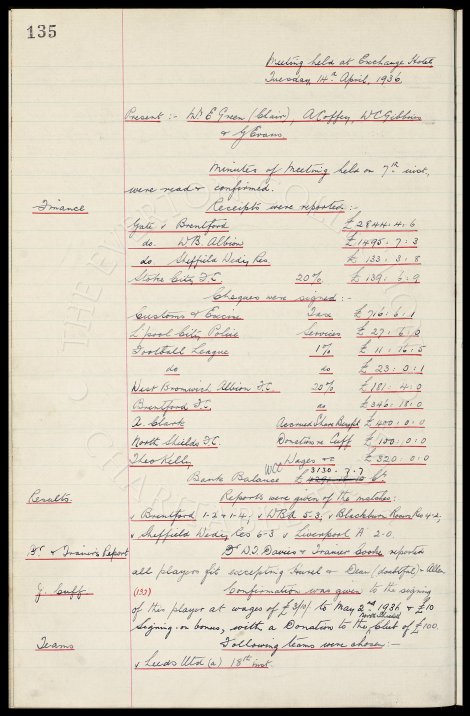 135
Meeting held at Exchange Hotel,
Tuesday 14th April, 1936
Present :- Mr. E Green (Chair), A Coffey, W C Gibbins
& G Evans.
Minutes of Meeting held on 7th inst.
were read & confirmed.
Finance Receipts were reported :-
Gate v Brentford £2844.4.6
do. W B. Albion £1495.7.3
do. Sheffield Wedy Res. £133.3.8
Stoke City F.C. 20% £139.6.9
Cheques were signed :-
Customs & Excise Taxe £716:6:1
L'pool City Police Services £27:
Football League 1% £11:16:5
do do £23:0:1
West Bromwich Albion F.C. 20% £181:4:0
Brentford F.C. do £346:18:0
A. Clark Accrued Share Benefit £400:0:0
North Shields F.C. Donation re Cuff £100:0:0
Theo Kelly Wages &c £320:0:0
Bank Balance £ 3130.7.7 Cr.
Results. Reports were given of the matches:
v Brentford 1-2 & 1-4; v WBA 5-3; v Blackburn Rovers Res 4-2,
v Sheffield Wedy Res 6-3 v Liverpool A 2.0.
Dr & Trainers Report Dr D.J. Davies & Trainer Cooke reported
all players fit excepting & Dean (doubtful) &
J. Cuff (137) Confirmation was given to the signing
of this player at wages of £3/10/- to May 2nd 1936 & £10
Signing-on bonus, with a Donation to the North Shields Club of £100.
Teams Following teams were chosen :-
v Leeds Utd (a) 18th inst.